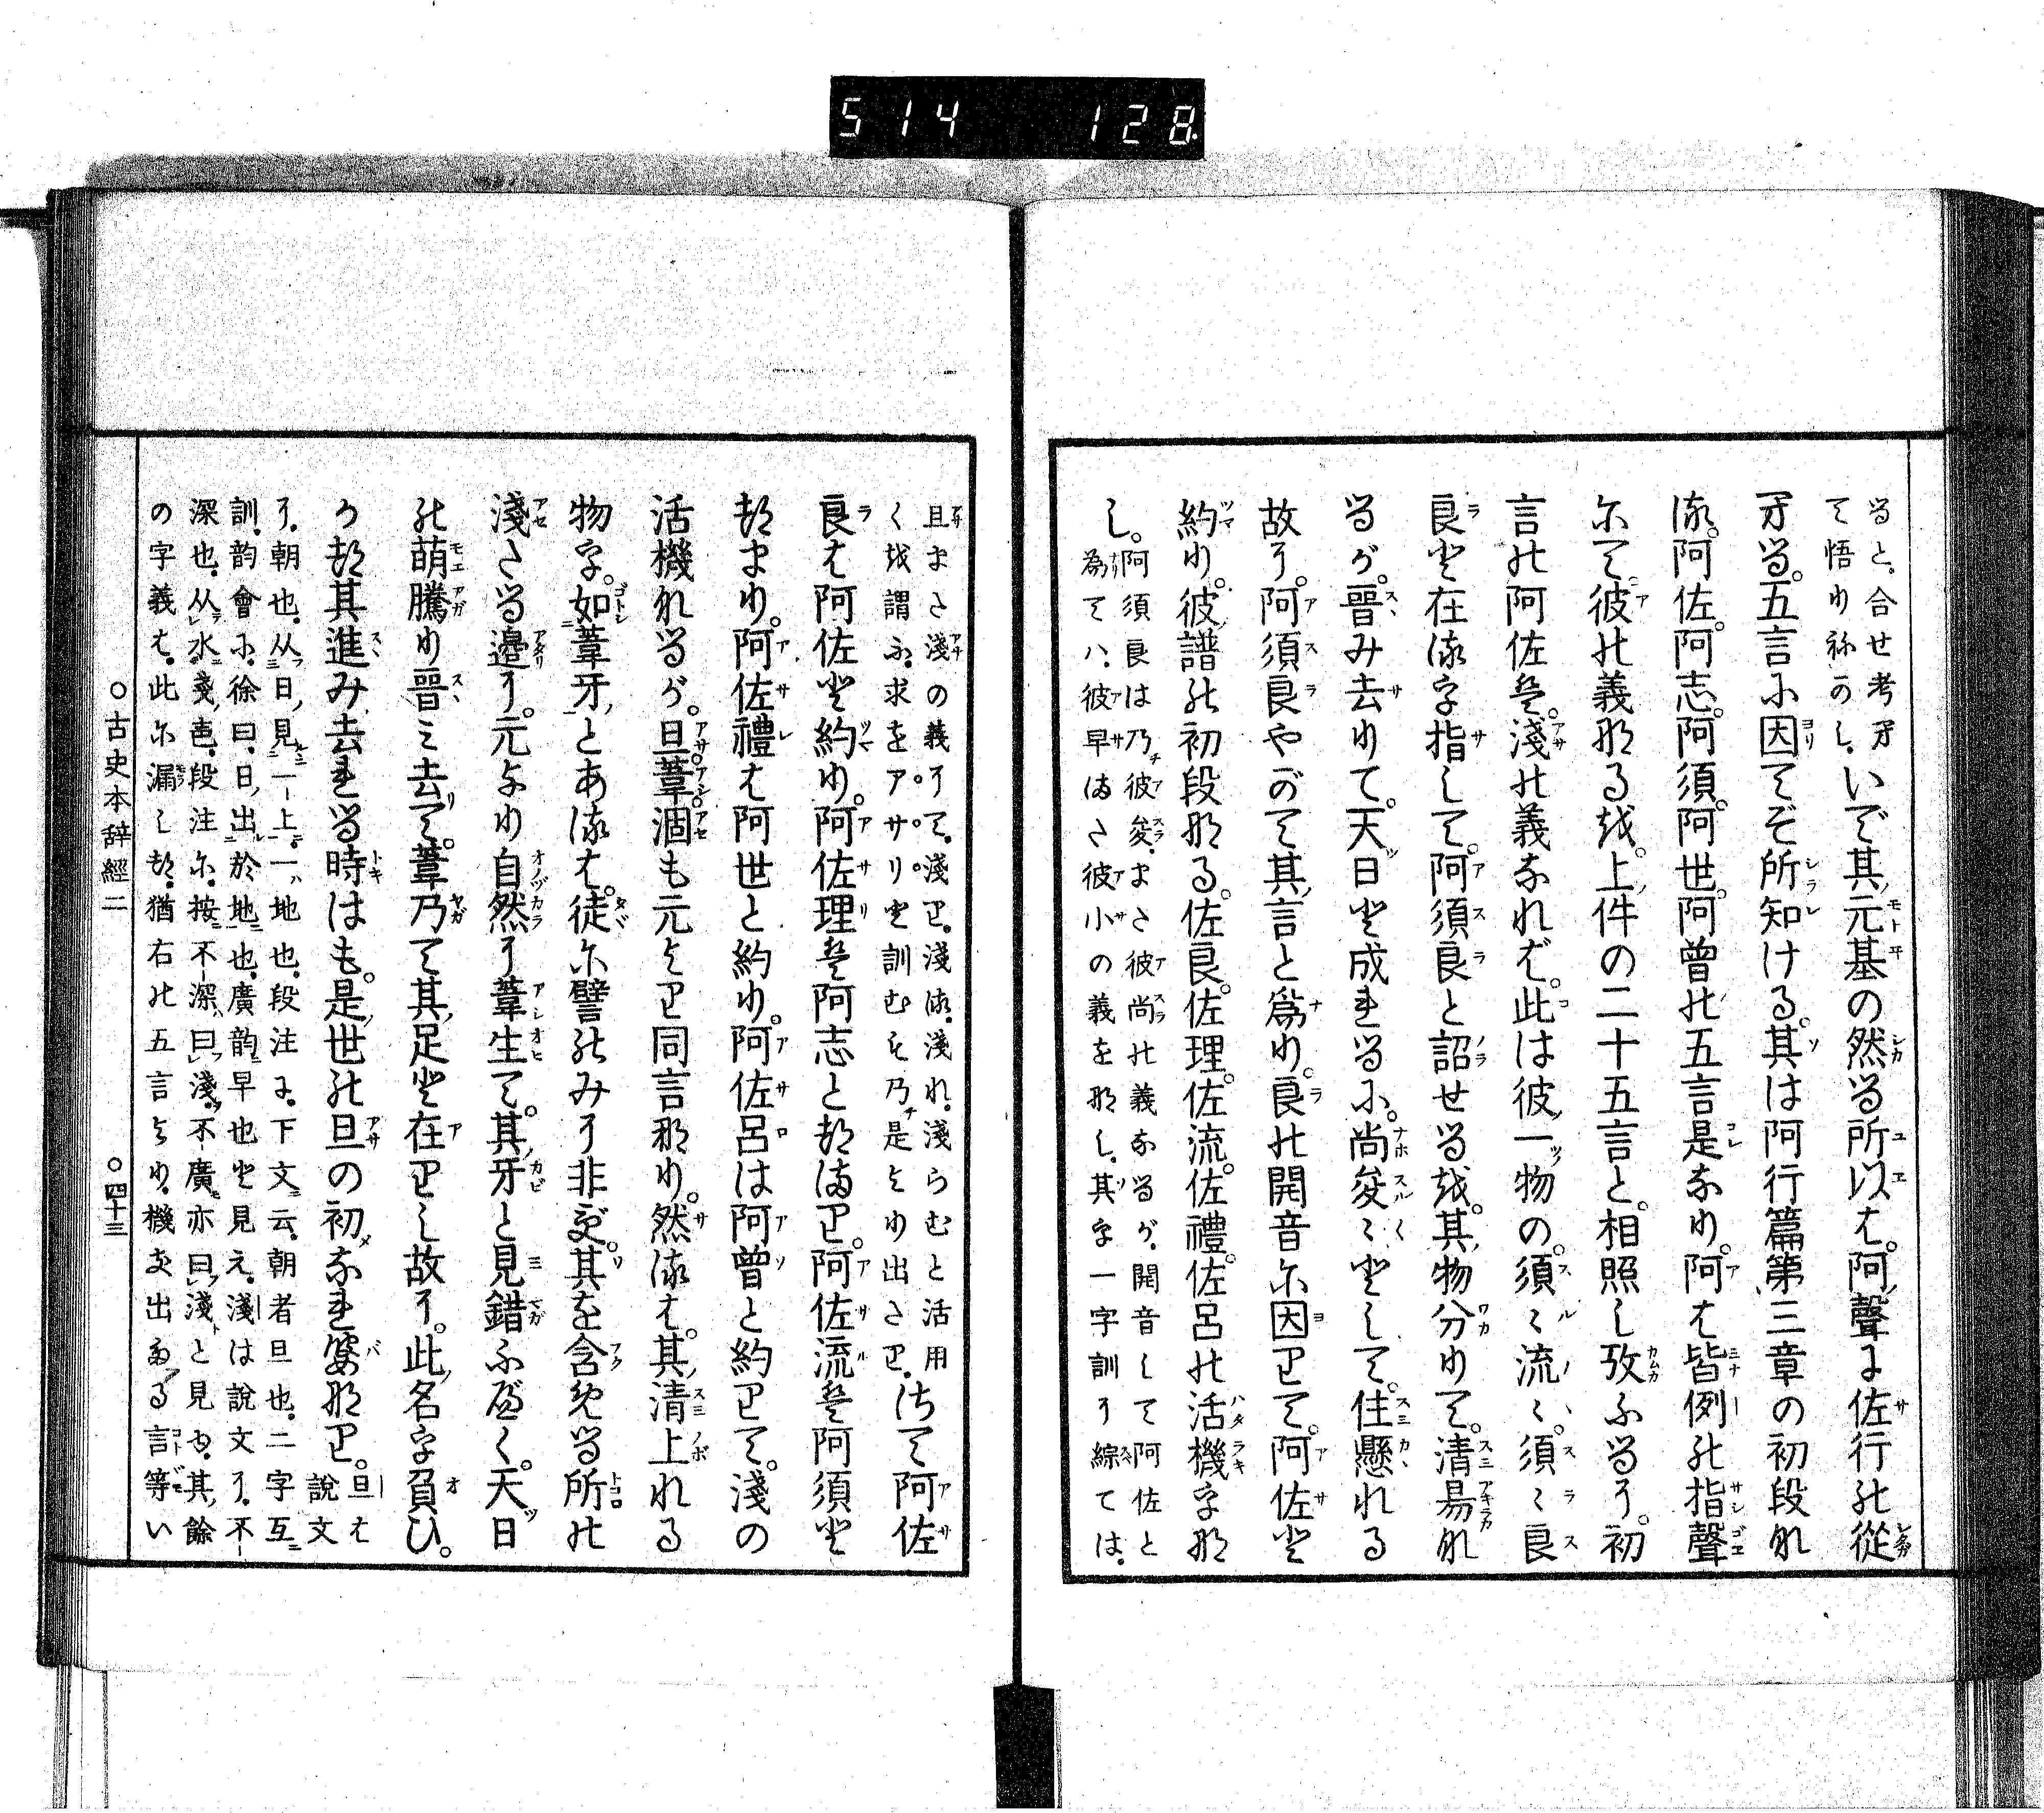 514 128
ると。合せ考ヲ
て悟りねかし。いで其元基の然る所以は。阿聲に佐行の從
る。五言に因てぞ所知ける。其は阿行篇第三章の初段な
る。阿佐。阿志。阿須。阿世。阿曾の五言是なり。阿は皆例の指聲
にて彼の義なるを。上件の二十五言と。相照し攷ふるに。初
言の阿佐は。淺の義なれば。此は彼一物の。須々流々。須々良
良と在る字指して。阿須良と詔せるを。其物分りて。清昜な
るが。晉み去りて。天日と成れるに。尚夋々として。住懸れる
故に。阿須良やがて其言と爲り。良の開音に因りて。阿佐と
約り。彼譜の初段なる。佐良。佐理。佐流。佐禮。佐呂の活機字な
し。阿須良は乃彼夋。また彼尚の義なるが。開音して阿佐と
爲ては。彼早また彼小の義を那し。其字一字訓に綜ては。
且また淺の義にて。淺り。淺る。淺れ。淺らむと活用
くを謂ふ。求をアサリと訓むも乃是より出たり。さて阿佐
良は阿佐と約り。阿佐理は阿志と都まり。阿佐流は阿須と
都まり。阿佐禮は阿世と約り。阿佐呂は阿曾と約りて。淺の
活機なるが。旦葦涸も元より同言那り。然るは。其清上れる
物字。如葦牙とあるは。徒に譬のみに非ず。其を含める所の
淺たる邊に。元より自然に葦生て。其牙と見錯ふべく。天日
の萌騰り晉み去て。葦乃て其足と在りし故に。此名字負ひ。
か都其進み去れる時はも。是世の旦の初なれ婆那り。旦は說文
に。朝也。从日見一上。一地也。段注に。下文云。朝者旦也。二字互
訓。韵會に。徐曰。日出於地也。廣韵早也と見え。淺は說文に。不
深也。从水戔聲。段注に。按不深曰淺。不廣亦曰淺と見ゆ。其餘
の字義は。此に漏しつ。猶右の五言より。機き出たる言等い
○古史本辭經二 ○四十三